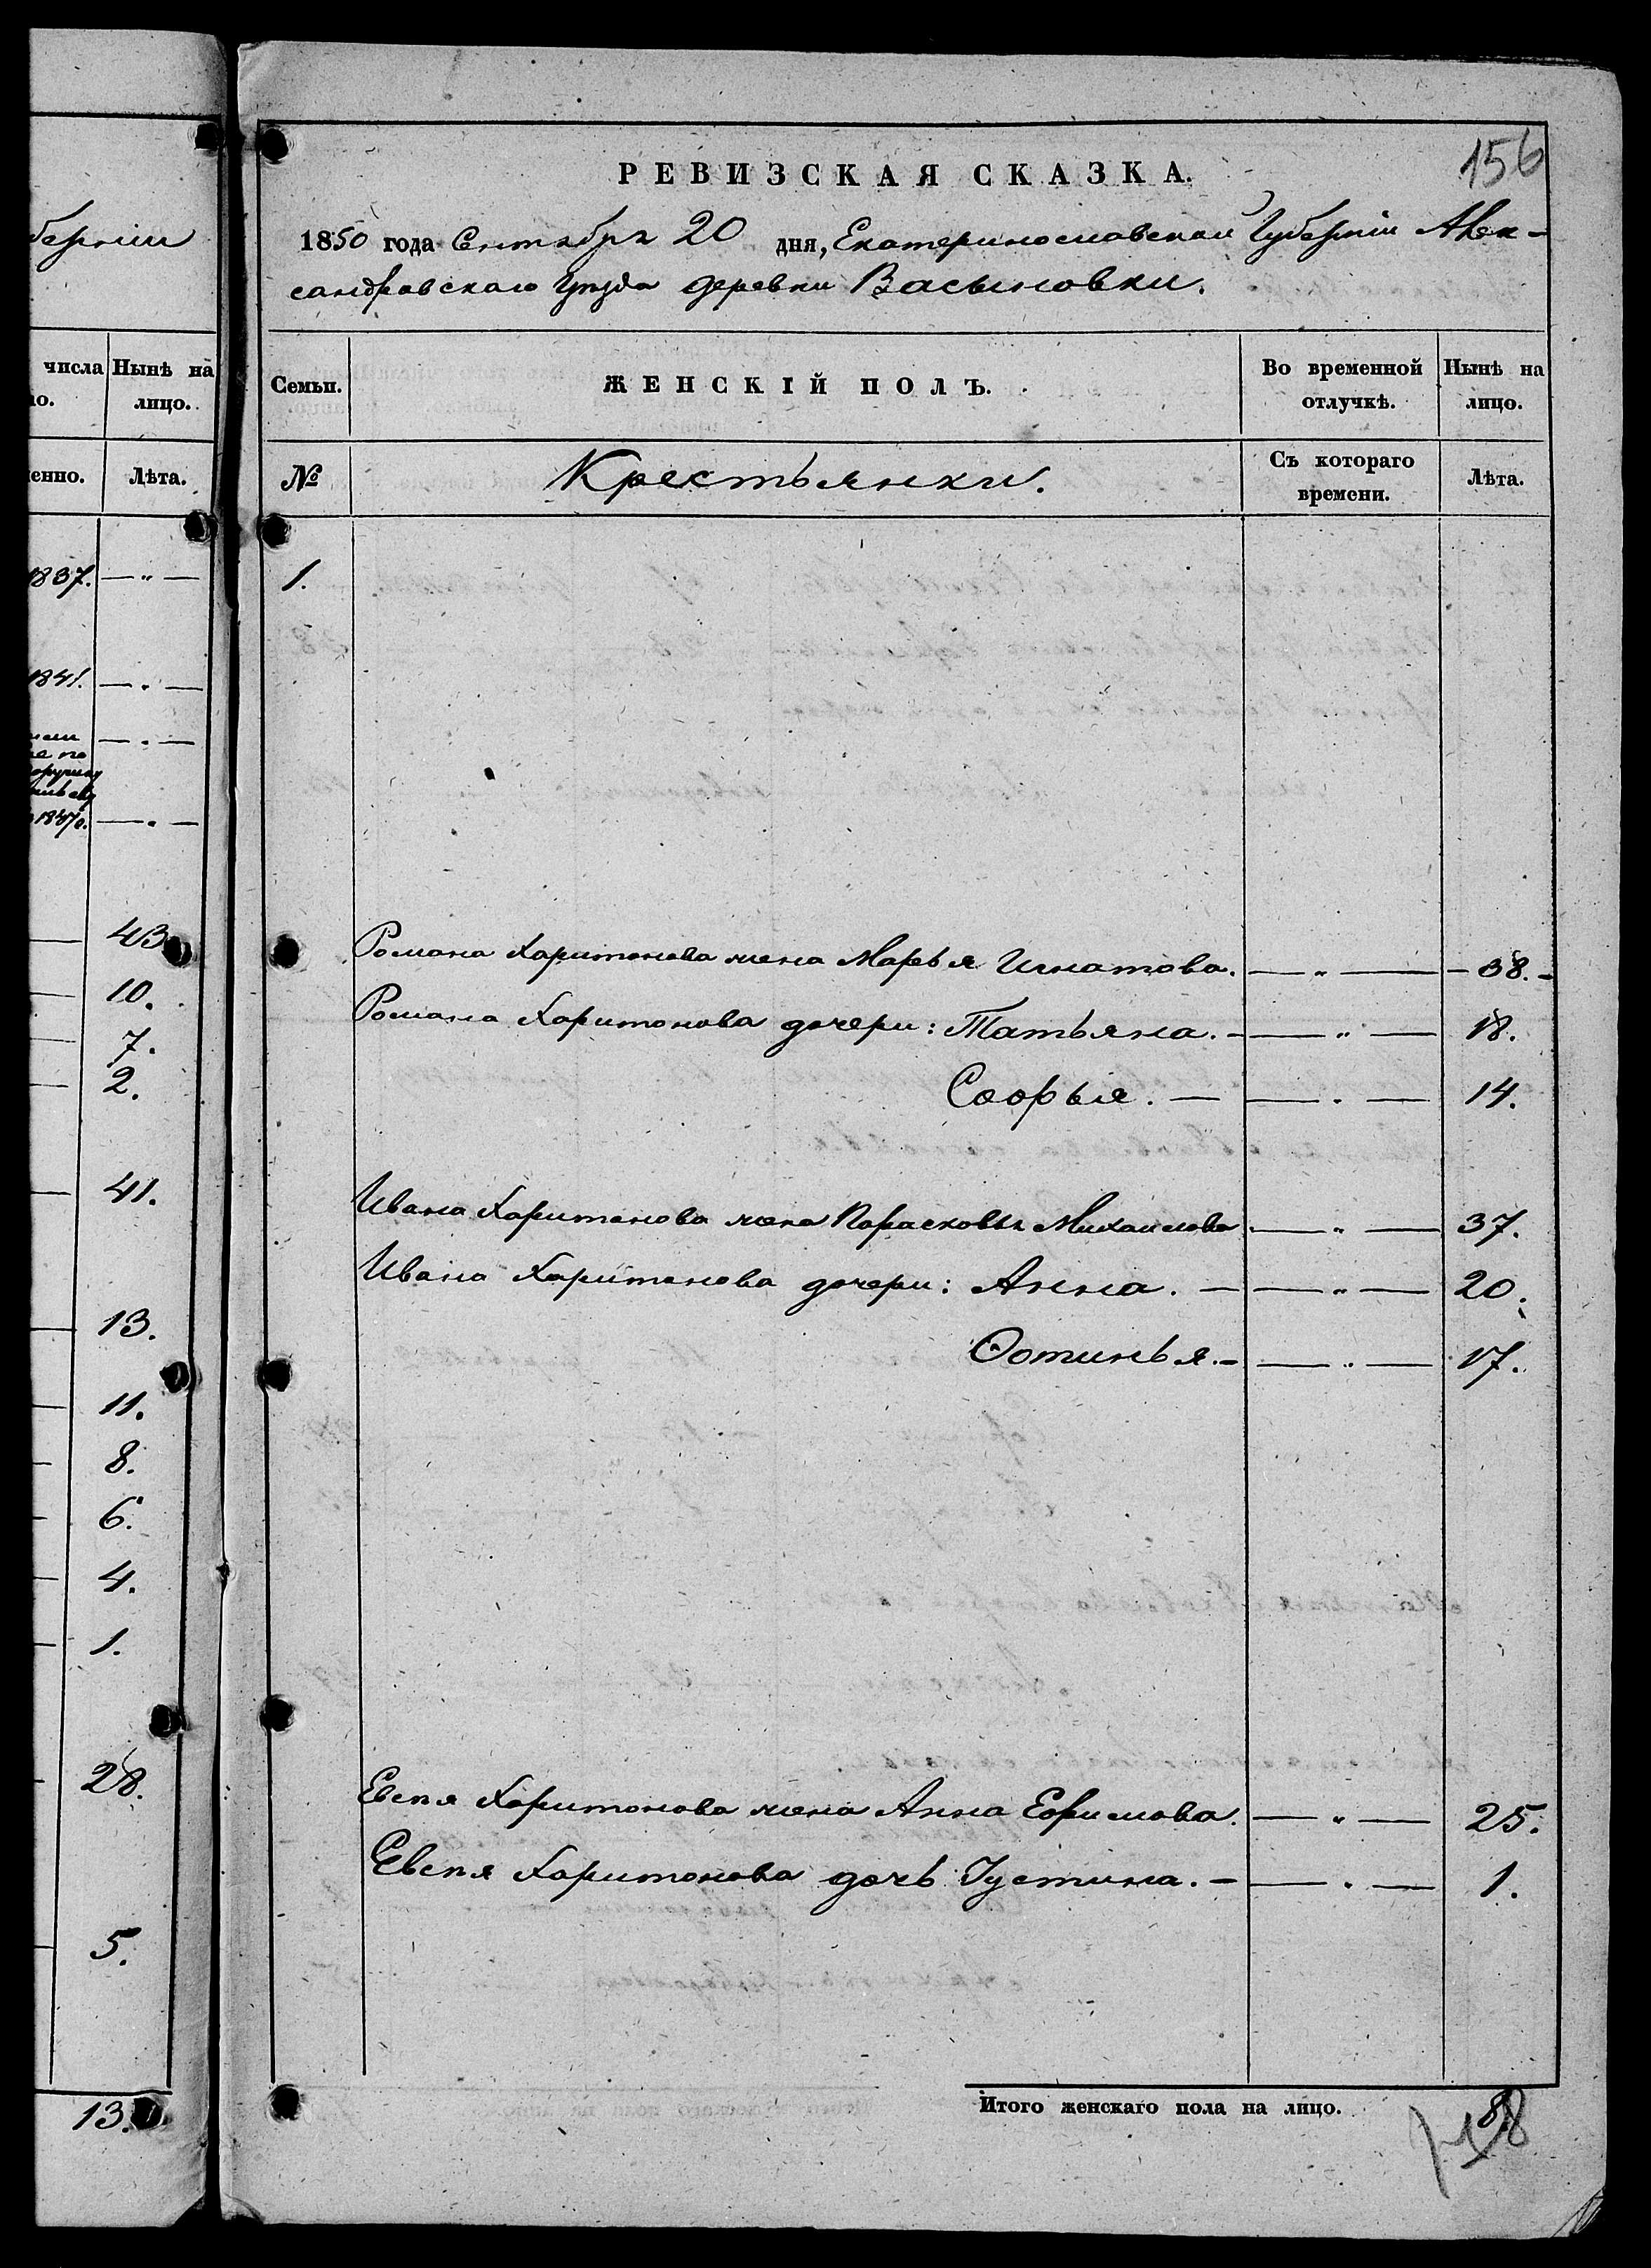 156
РЕВИЗСКАЯ СКАЗКА.
1850 года Сентября 20 дня, Екатеринославской Губерніи Алек-
сандровскаго Уезда деревни Васыновки.
Семьи.
ЖЕНСКІЙ ПОЛЪ.
Во временной отлучкѣ.
Нынѣ на лицо.
№
Крестьянки.
Съ котораго времени.
Лѣта.
1.
Романа Харитонова жена Марья Игнатова. — „ — 38.
Романа Харитонова дочери: Татьяна. — „ — 18.
Софья. — „ — 14.
Ивана Харитонова жена Парасковья Михайлова — „ — 37.
Ивана Харитонова дочери: Анна. — „ — 20.
Фотинья. — „ — 17.
Евспя Харитонова жена Анна Ефимова. — „ — 25.
Евспя Харитонова дочь Іустина. — „ — 1.
Итого женскаго пола на лицо. 8.
8
берніи
числа
Нынѣ на лицо.
но.
енно.
Лѣта.
1837. — „ —
1841. — „ —
— „ —
— „ —
43
10.
7.
2.
41.
13.
11.
8.
6.
4.
1.
28.
5.
13.